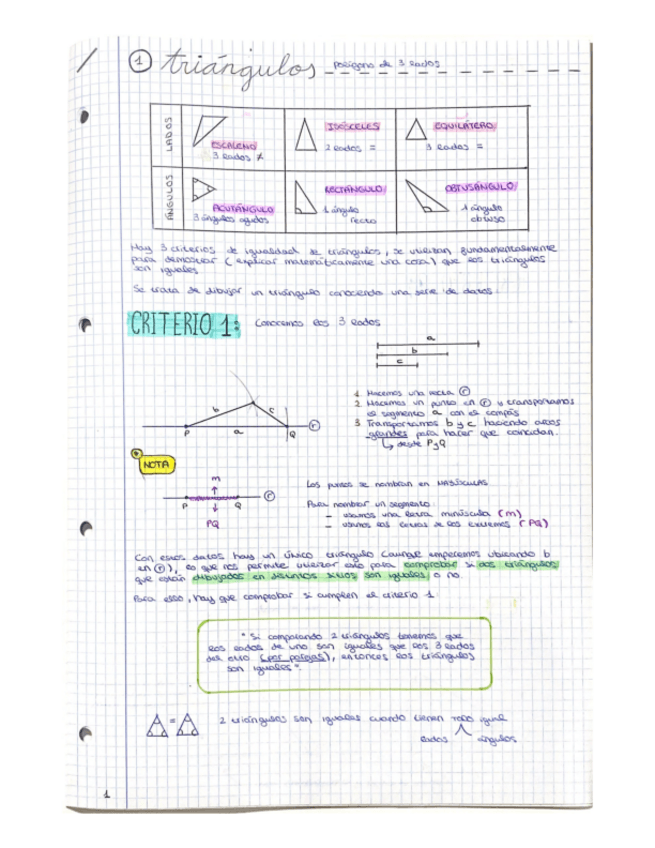 1 triángulos polígono de 3 lados
LADOS
ESCALENO
3 lados ≠
ISÓSCELES
2 lados =
EQUILÁTERO
3 lados =
ÁNGULOS
ACUTÁNGULO
3 ángulos agudos
RECTÁNGULO
1 ángulo
recto
OBTUSÁNGULO
1 ángulo
obtuso
Hay 3 criterios de igualdad de triángulos, se utilizan fundamentalmente
para demostrar (explicar matemáticamente una cosa) que los triángulos
son iguales
Se trata de dibujar un triángulo conociendo una serie de datos.
CRITERIO 1: Conocemos los 3 lados
a
b
c
b c
P a Q r
1 Hacemos una recta r
2 Hacemos un punto en r y transportamos
el segmento a con el compás
3 Transportamos b y c haciendo arcos
grandes para hacer que coincidan.
desde P y Q
NOTA
m
P Q r
PQ
Los puntos se nombran en MAYÚSCULAS
Para nombrar un segmento
- usamos una letra minúscula (m)
- usamos las letras de los extremos (PQ)
Con estos datos hay un único triángulo (aunque empecemos ubicando b
en r), lo que nos permite utilizar esto para comprobar si dos triángulos
que están dibujados en distintos sitios son iguales o no.
Para ello, hay que comprobar si cumplen el criterio 1.
"Si comparando 2 triángulos tenemos que
los lados de uno son iguales que los 3 lados
del otro (por parejas), entonces los triángulos
son iguales".
= 2 triángulos son iguales cuando tienen todo igual
lados ángulos
1